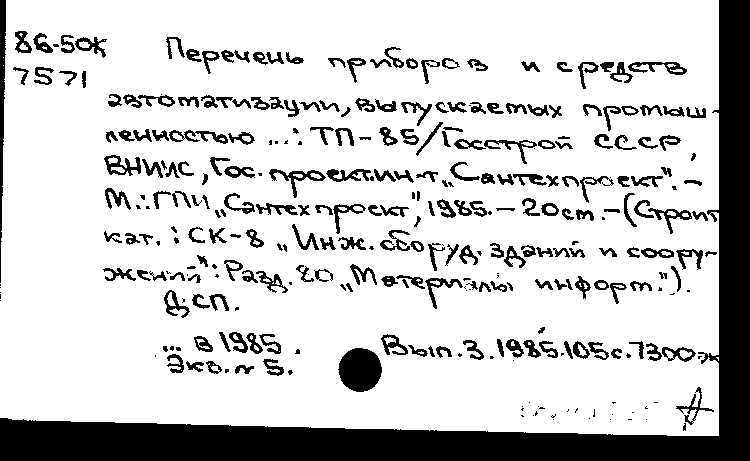 86-50К Перечень приборов и средств
7571
автоматизации, выпускаемых промыш-
ленностью ...: ТП-85/Госстрой СССР,
ВНИИС, Гос. проект.ин-т „Сантехпроект". -
М.: ГПИ „Сантехпроект", 1985. - 20см. - (Строит
кат. : СК-8 „Инж. оборуд. зданий и соору-
жений": Разд. 80 „Материалы информ.").
ДСП.
... в 1985. Вып. 3. 1985. 105с. 7300эк
Экз. № 5.